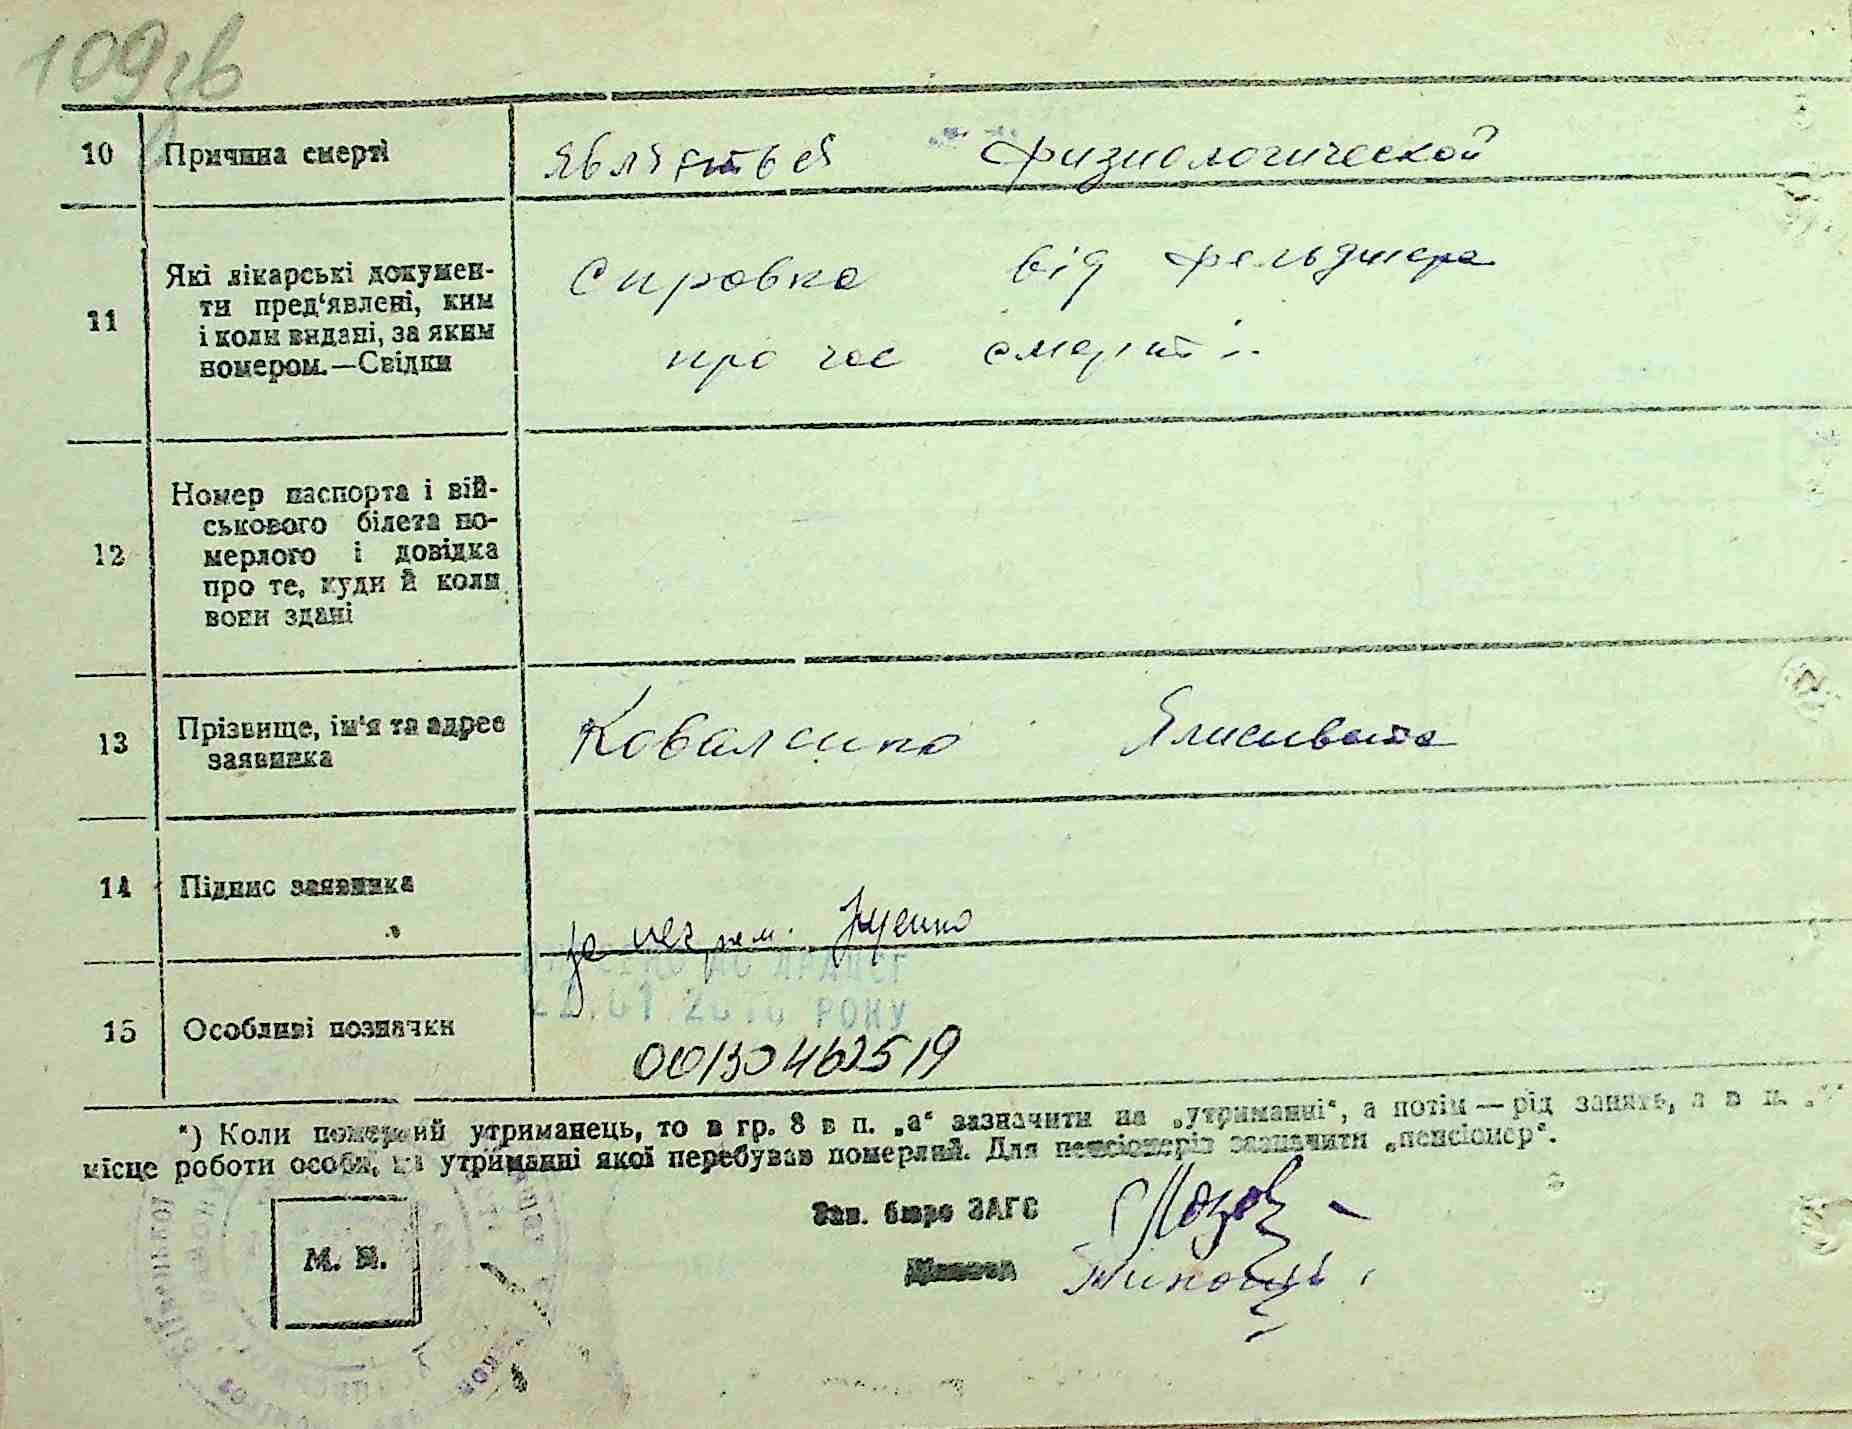 109зв
10 Причина смерті являться физиологической
11 Які лікарські докумен-
ти пред'явлені, ким
і коли видані, за яким
номером.—Свідки
Справка від фельдшера
про час смерті.
12 Номер паспорта і вій-
ськового білета по-
мерлого і довідка
про те, куди й коли
вони здані
13 Прізвище, ім'я та адрес
заявника
Коваленко Ялисивета
14 Підпис заявника
за неграм.
15 Особливі позначки
РОКУ
00130462519
*) Коли померлий утриманець, то в гр. 8 в п. „а“ зазначити на „утриманні“, а потім — рід занять, а в п.
місце роботи особи, на утриманні якої перебував померлий. Для пенсіонерів зазначити „пенсіонер“.
М. П.
Зав. бюро ЗАГС
Діловод